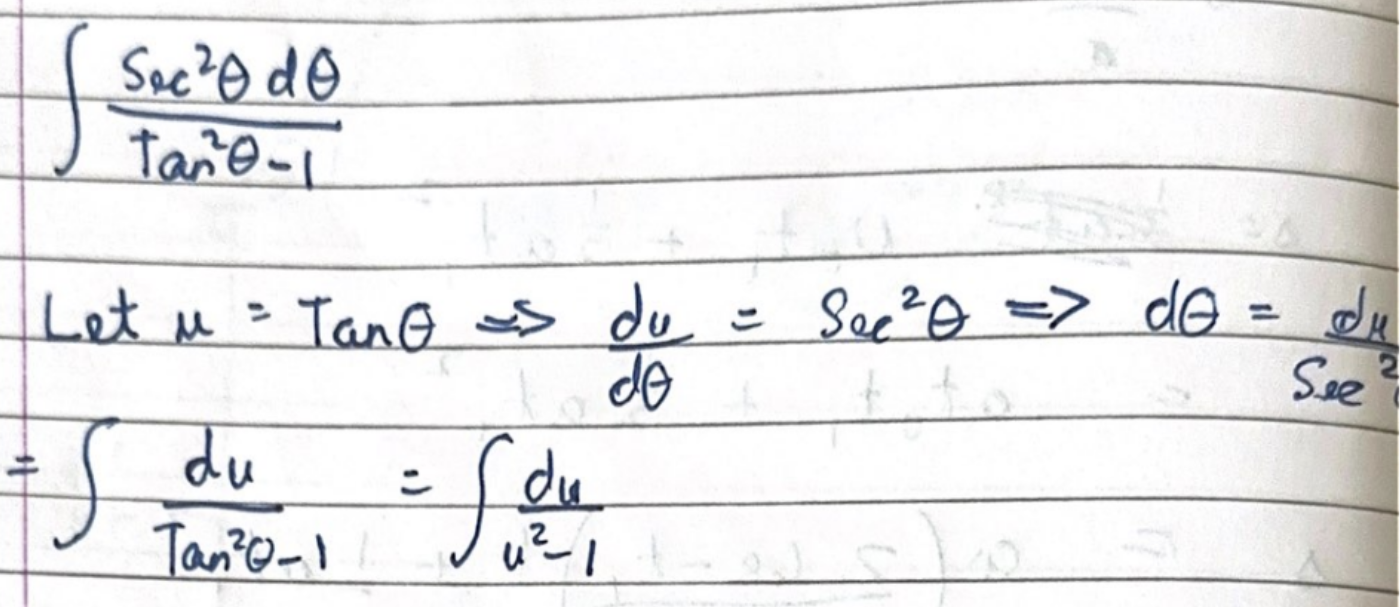 ∫ Sec²θ dθ / Tan²θ-1
Let u = Tanθ => du/dθ = Sec²θ => dθ = du/Sec²
= ∫ du / Tan²θ-1 = ∫ du / u²-1